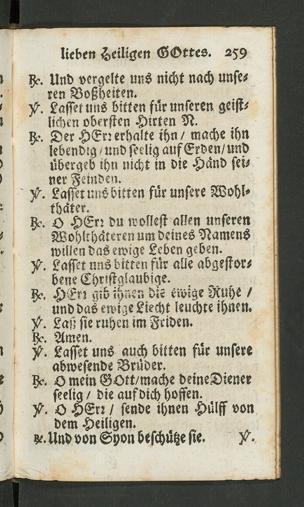 lieben Heiligen GOttes. 259
℟. Und vergelte uns nicht nach unse-
ren Boßheiten.
℣. Lasset uns bitten für unseren geist-
lichen obersten Hirten N.
℟. Der HErr erhalte ihn / mache ihn
lebendig / und seelig auf Erden / und
übergeb ihn nicht in die Händ sei-
ner Feinden.
℣. Lasset uns bitten für unsere Wohl-
thäter.
℟. O HErr du wollest allen unseren
Wohlthäteren um deines Namens
willen das ewige Leben geben.
℣. Lasset uns bitten für alle abgestor-
bene Christglaubige.
℟. HErr gib ihnen die ewige Ruhe /
und das ewige Liecht leuchte ihnen.
℣. Laß sie ruhen im Friden.
℟. Amen.
℣. Lasset uns auch bitten für unsere
abwesende Brüder.
℟. O mein GOtt / mache deine Diener
seelig / die auf dich hoffen.
℣. O HErr / sende ihnen Hülff von
dem Heiligen.
℟. Und von Syon beschütze sie. ℣.